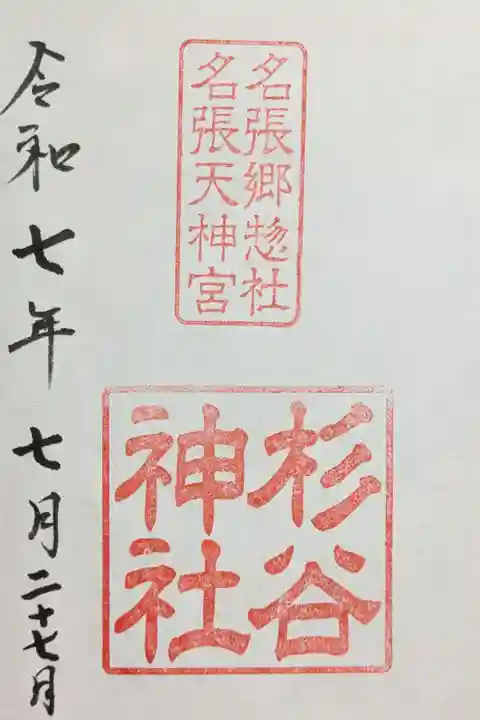 名張郷惣社
名張天神宮
杉谷
神社
令和七年七月二十七日